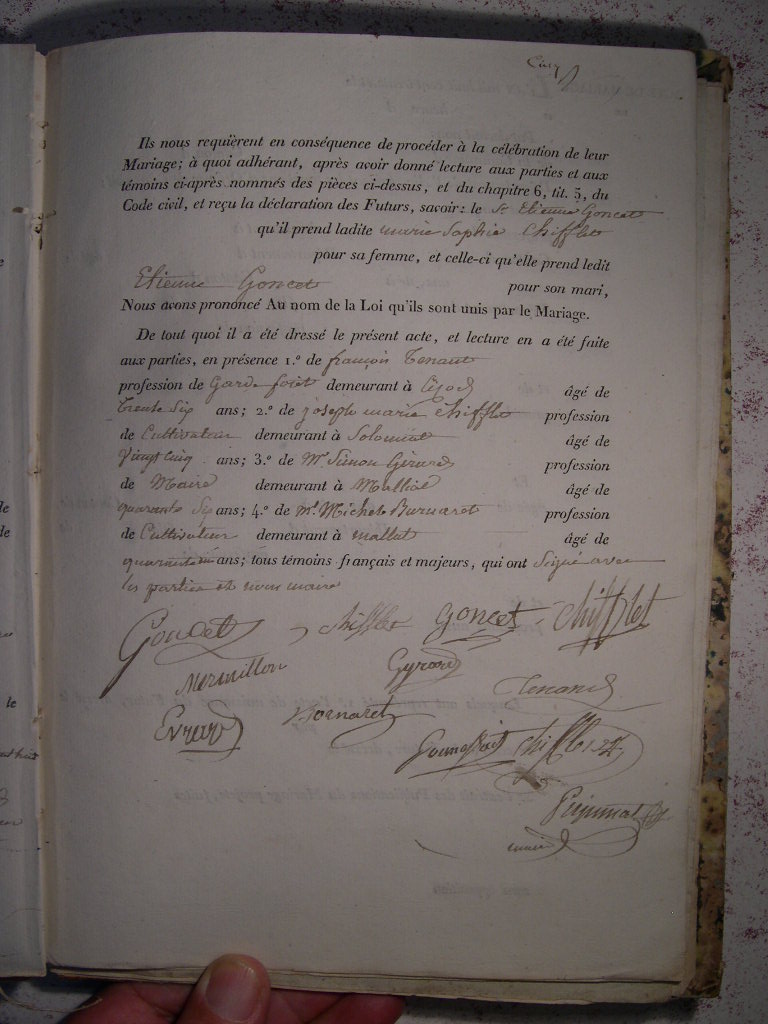 Cinq
Ils nous requièrent en conséquence de procéder à la célébration de leur
Mariage; à quoi adhérant, après avoir donné lecture aux parties et aux
témoins ci-après nommés des pièces ci-dessus, et du chapitre 6, tit. 5, du
Code civil, et reçu la déclaration des Futurs, savoir: le Sr Etienne Goncet
qu'il prend ladite marie Sophie Chifflet
pour sa femme, et celle-ci qu'elle prend ledit
Etienne Goncet pour son mari,
Nous avons prononcé Au nom de la Loi qu'ils sont unis par le Mariage.
De tout quoi il a été dressé le présent acte, et lecture en a été faite
aux parties, en présence 1.º de françois Tenant
profession de Garde foret demeurant à âgé de
trente Six ans; 2.º de joseph marie Chifflet profession
de Cultivateur demeurant à Solomiat âgé de
Vingt Cinq ans; 3.º de Mr Simon Girard profession
de Maire demeurant à âgé de
quarante Six ans; 4.º de Mr. Michel Burnaret profession
de Cultivateur demeurant à âgé de
ans; tous témoins français et majeurs, qui ont Signé avec
les parties et nous maire
Goncet chifflet Goncet Chifflet
Mermillon Gyrard Tenand
Evrard Bornaret
chifflet